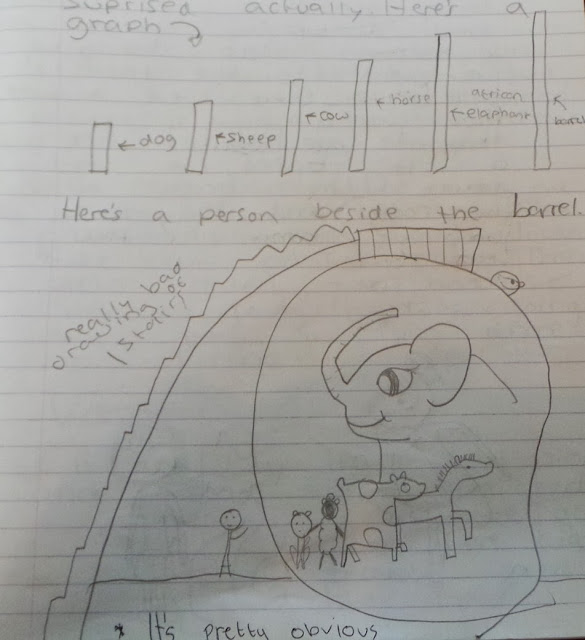 suprised actually. Here's a
graph
dog
sheep
cow
horse
african
elaphant
Here's a person beside the barrel.
really bad
drawing of
1 stair!
* It's pretty obvious